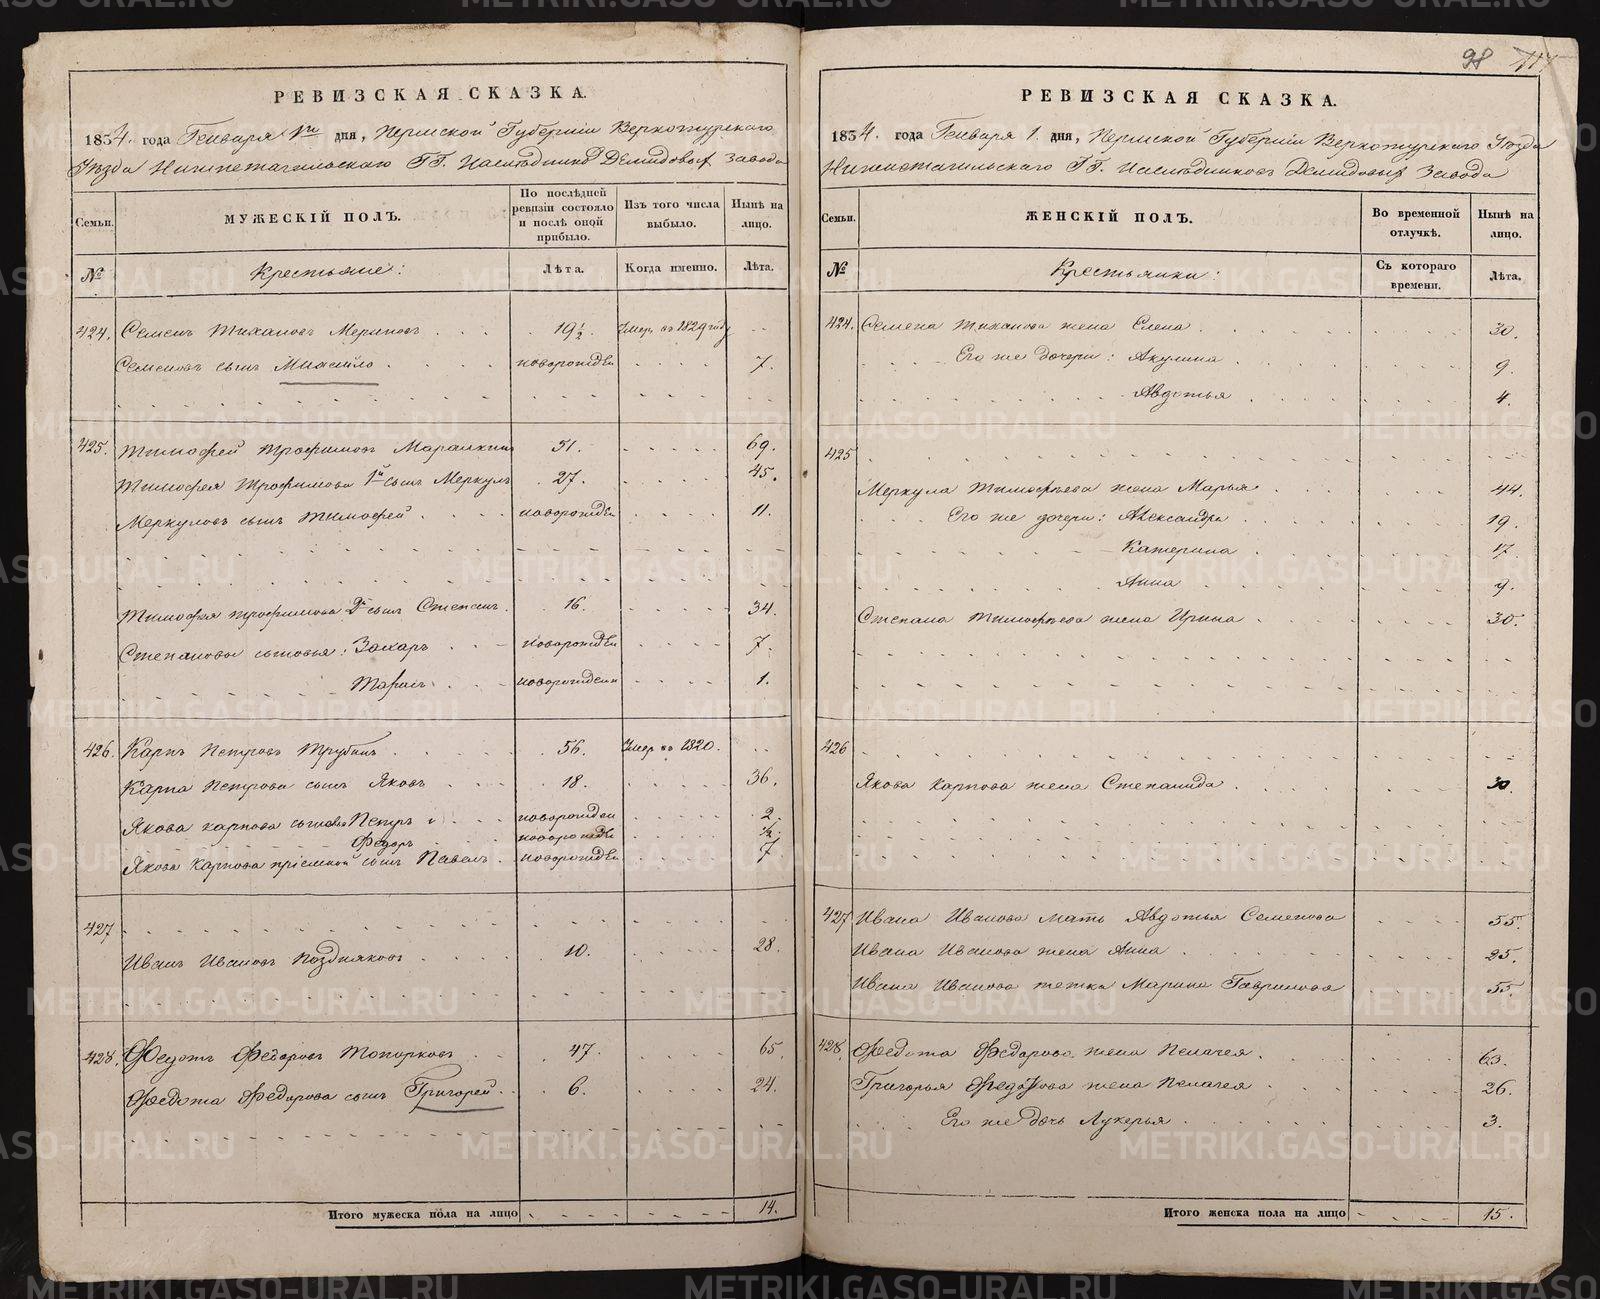 98
РЕВИЗСКАЯ СКАЗКА.
1834 года Генваря 1го дня, Пермской Губернiи Верхотурскаго
Уѣзда Нижнетагильскаго ГГ. Наслѣдниковъ Демидовыхъ Завода
Семьи.
МУЖЕСКIЙ ПОЛЪ.
По послѣдней ревизiи состояло и послѣ оной прибыло.
Изъ того числа выбыло.
Нынѣ на лицо.
№
Крестьяне:
Лѣта.
Когда именно.
Лѣта.
424. Семенъ Тихановъ Мериновъ 19 1/2. Умер. въ 1829 году
Семеновъ сынъ новорожден 7.
425. Тимофей Трофимовъ 51. 69.
Тимофея Трофимова 1й сынъ Меркулъ 27. 45.
Меркуловъ сынъ Тимофей новорожден 11.
Тимофея Трофимова 2й сынъ Степанъ 16. 34.
Степановы сыновья: Захаръ новорожден 7.
новорожден 1.
426. Карпъ Петровъ Трубинъ 56. Умер въ 1820.
Карпа Петрова сынъ Яковъ 18. 36.
Якова Карпова сыновья Петръ новорожден 2.
Федоръ новорожден 1/2.
Якова Карпова прiемной сынъ Павелъ новорожден 7
427
Иванъ Ивановъ Поздняковъ 10. 28.
428. Федотъ Федоровъ Топорковъ 47. 65.
Федота Федорова сынъ Григорей 6. 24.
Итого мужеска пола на лицо 14.
РЕВИЗСКАЯ СКАЗКА.
1834. года Генваря 1. дня, Пермской Губернiи Верхотурскаго Уѣзда
Нижнетагильскаго ГГ. Наслѣдниковъ Демидовыхъ Завода
Семьи.
ЖЕНСКIЙ ПОЛЪ.
Во временной отлучкѣ.
Нынѣ на лицо.
№
Крестьянки:
Съ котораго времени.
Лѣта.
424. Семена Тиханова жена Елена 30.
Его же дочери: Акулина 9.
Авдотья 4.
425
Меркула Тимофѣева жена Марья 44.
Его же дочери: Александра 19.
Катерина 17.
Анна 9.
Степана Тимофѣева жена Ирина 30.
426
Якова Карпова жена Степанида 30.
427 Ивана Иванова мать Авдотья Семенова 55.
Ивана Иванова жена Анна 25.
Ивана Иванова тетка Марина Гаврилова 55.
428. Федота Федорова жена Пелагея 63.
Григорья Федотова жена Пелагея 26.
Его же дочь Лукерья 3.
Итого женска пола на лицо 15.
METRIKI.GASO-URAL.RU